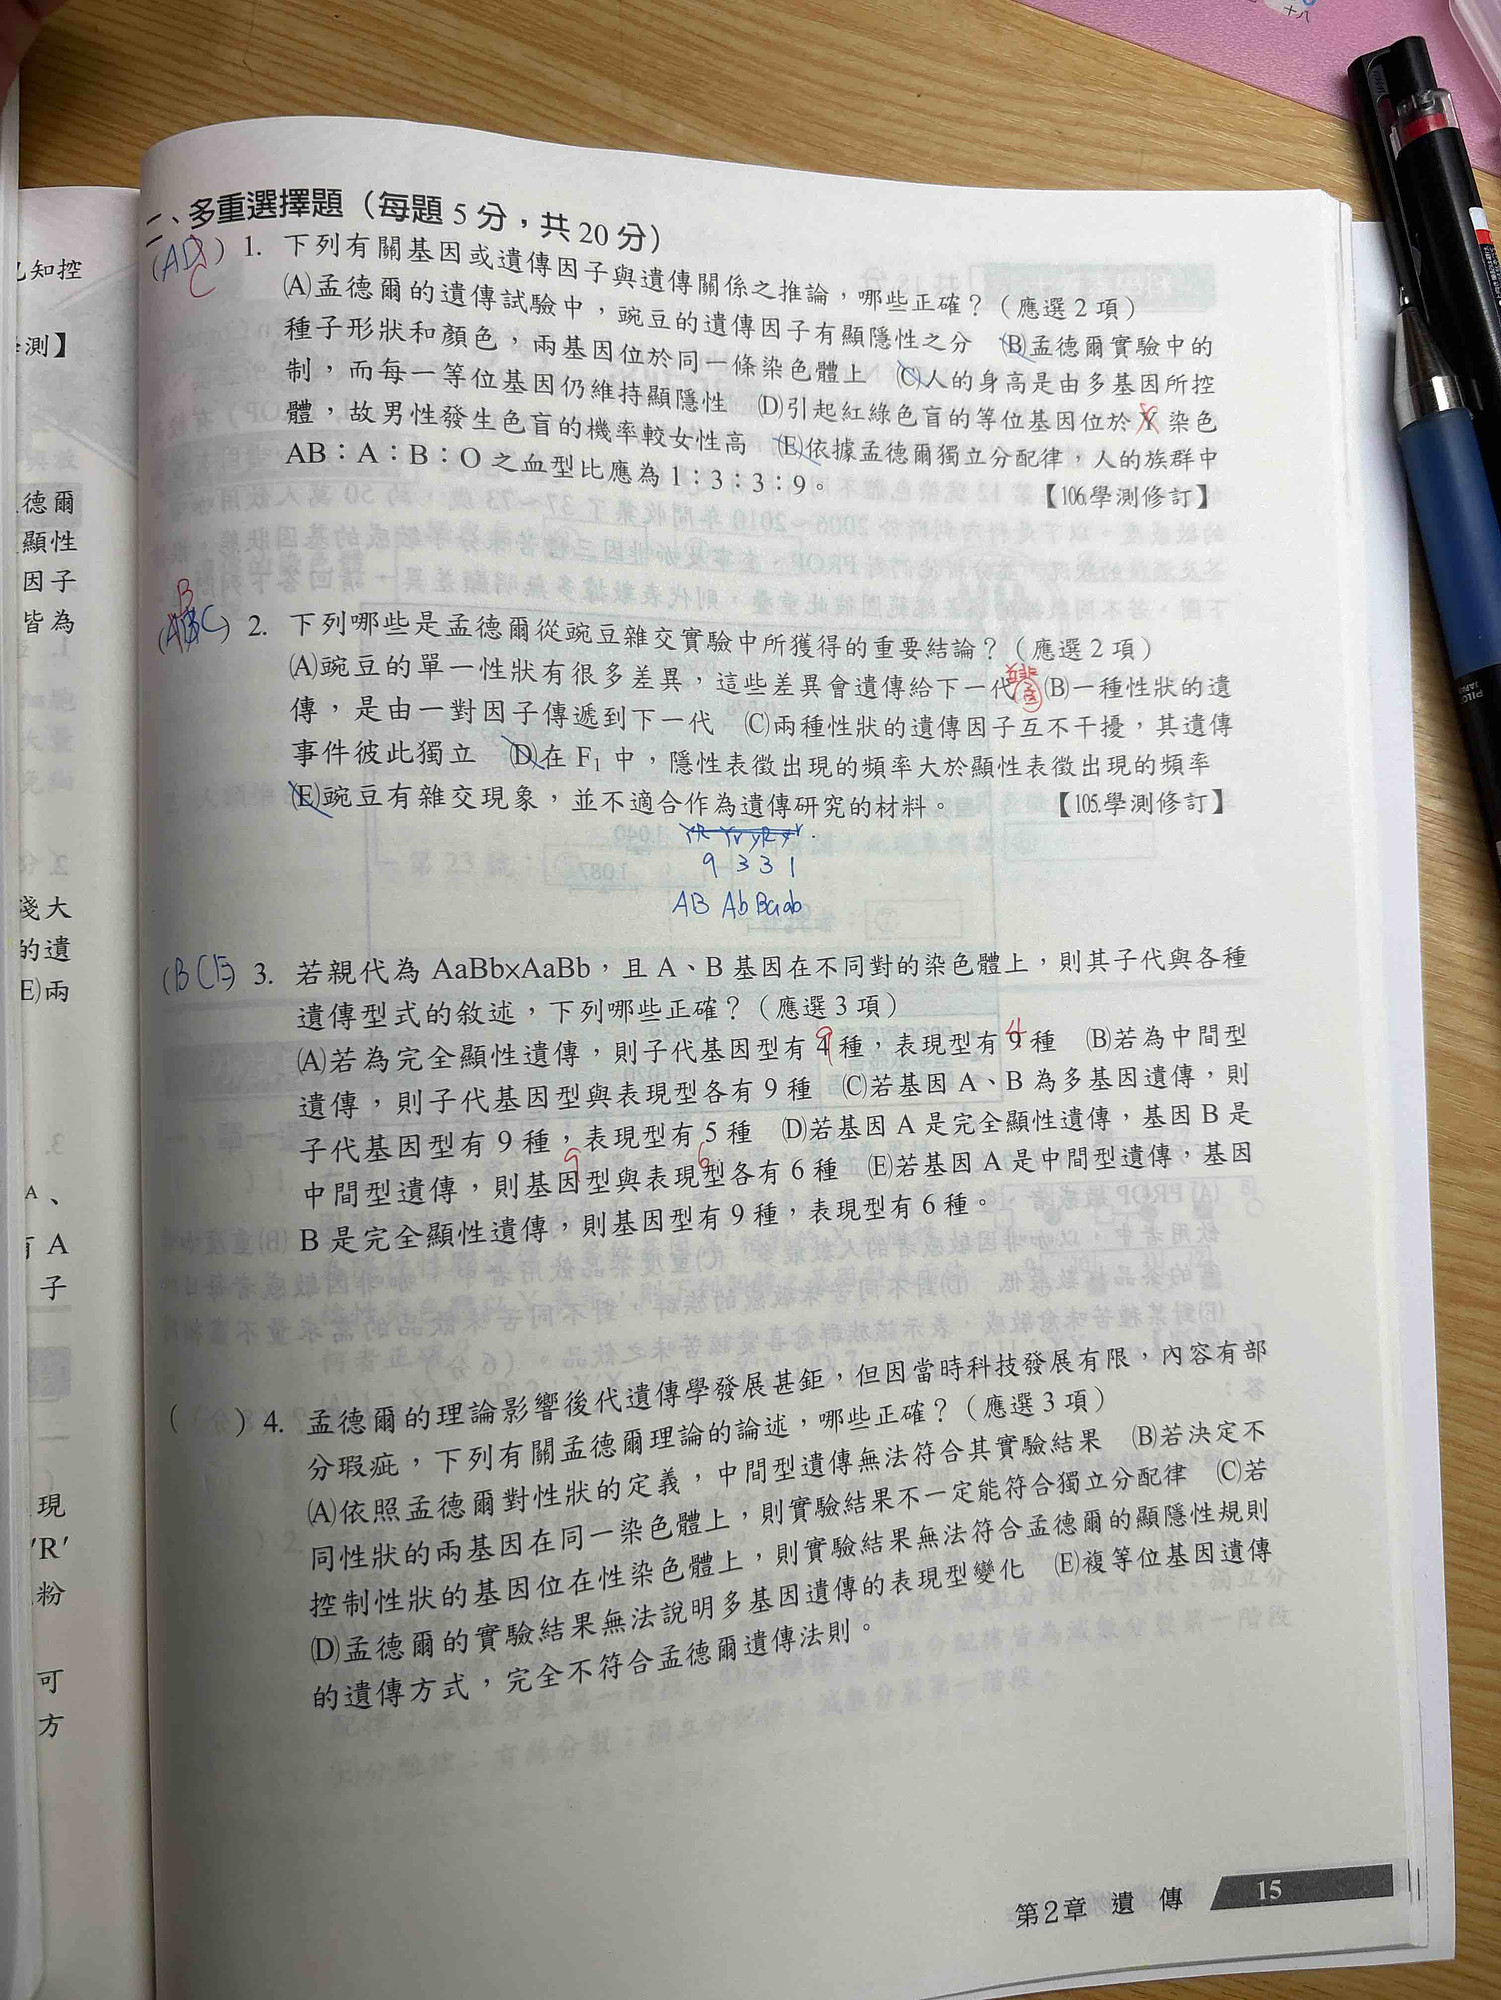 十八
二、多重選擇題（每題 5 分，共 20 分）
(AD) 1. 下列有關基因或遺傳因子與遺傳關係之推論，哪些正確？（應選 2 項）
C
(A)孟德爾的遺傳試驗中，豌豆的遺傳因子有顯隱性之分 (B)孟德爾實驗中的
種子形狀和顏色，兩基因位於同一條染色體上 (C)人的身高是由多基因所控
制，而每一等位基因仍維持顯隱性 (D)引起紅綠色盲的等位基因位於 Y 染色
體，故男性發生色盲的機率較女性高 (E)依據孟德爾獨立分配律，人的族群中
AB：A：B：O 之血型比應為 1：3：3：9。 【106.學測修訂】
B
(ABC) 2. 下列哪些是孟德爾從豌豆雜交實驗中所獲得的重要結論？（應選 2 項）
(A)豌豆的單一性狀有很多差異，這些差異會遺傳給下一代 (B)一種性狀的遺
傳，是由一對因子傳遞到下一代 (C)兩種性狀的遺傳因子互不干擾，其遺傳
事件彼此獨立 (D)在 F1 中，隱性表徵出現的頻率大於顯性表徵出現的頻率
(E)豌豆有雜交現象，並不適合作為遺傳研究的材料。 【105.學測修訂】
9 3 3 1
AB Ab Ba ab
(BCE) 3. 若親代為 AaBb×AaBb，且 A、B 基因在不同對的染色體上，則其子代與各種
遺傳型式的敘述，下列哪些正確？（應選 3 項）
9 4
(A)若為完全顯性遺傳，則子代基因型有 4 種，表現型有 9 種 (B)若為中間型
遺傳，則子代基因型與表現型各有 9 種 (C)若基因 A、B 為多基因遺傳，則
子代基因型有 9 種，表現型有 5 種 (D)若基因 A 是完全顯性遺傳，基因 B 是
9 6
中間型遺傳，則基因型與表現型各有 6 種 (E)若基因 A 是中間型遺傳，基因
B 是完全顯性遺傳，則基因型有 9 種，表現型有 6 種。
( ) 4. 孟德爾的理論影響後代遺傳學發展甚鉅，但因當時科技發展有限，內容有部
分瑕疵，下列有關孟德爾理論的論述，哪些正確？（應選 3 項）
(A)依照孟德爾對性狀的定義，中間型遺傳無法符合其實驗結果 (B)若決定不
同性狀的兩基因在同一染色體上，則實驗結果不一定能符合獨立分配律 (C)若
控制性狀的基因位在性染色體上，則實驗結果無法符合孟德爾的顯隱性規則
(D)孟德爾的實驗結果無法說明多基因遺傳的表現型變化 (E)複等位基因遺傳
的遺傳方式，完全不符合孟德爾遺傳法則。
第2章 遺 傳 15
知控
測】
德爾
顯性
因子
皆為
淺大
的遺
E)兩
A、
A
子
現
'R'
粉
可
方